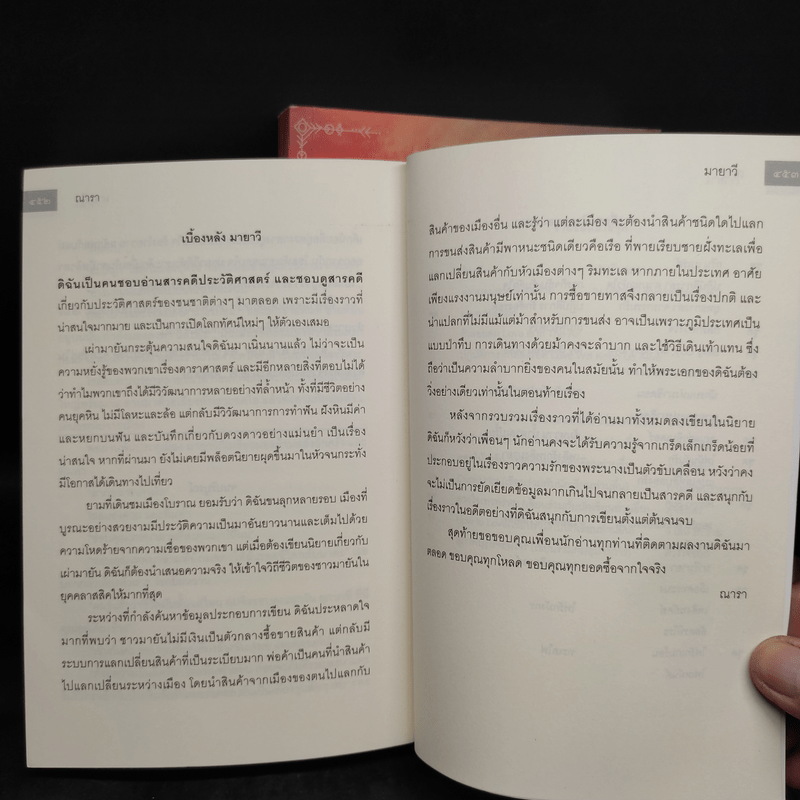 ๔๕๒
ณารา
เบื้องหลัง มายาวี
ดิฉันเป็นคนชอบอ่านสารคดีประวัติศาสตร์ และชอบดูสารคดี
เกี่ยวกับประวัติศาสตร์ของชนชาติต่างๆ มาตลอด เพราะมีเรื่องราวที่
น่าสนใจมากมาย และเป็นการเปิดโลกทัศน์ใหม่ๆ ให้ตัวเองเสมอ
เผ่ามายันกระตุ้นความสนใจดิฉันมาเนิ่นนานแล้ว ไม่ว่าจะเป็น
ความหยั่งรู้ของพวกเขาเรื่องดาราศาสตร์ และมีอีกหลายสิ่งที่ตอบไม่ได้
ว่าทำไมพวกเขาถึงได้มีวิวัฒนาการหลายอย่างที่ล้ำหน้า ทั้งที่มีชีวิตอย่าง
คนยุคหิน ไม่มีโลหะและล้อ แต่กลับมีวิวัฒนาการการทำฟัน ฝังหินมีค่า
และหยกบนฟัน และบันทึกเกี่ยวกับดวงดาวอย่างแม่นยำ เป็นเรื่อง
น่าสนใจ หากที่ผ่านมา ยังไม่เคยมีพล็อตนิยายผุดขึ้นมาในหัวจนกระทั่ง
มีโอกาสได้เดินทางไปเที่ยว
ยามที่เดินชมเมืองโบราณ ยอมรับว่า ดิฉันขนลุกหลายรอบ เมืองที่
บูรณะอย่างสวยงามมีประวัติความเป็นมาอันยาวนานและเต็มไปด้วย
ความโหดร้ายจากความเชื่อของพวกเขา แต่เมื่อต้องเขียนนิยายเกี่ยวกับ
เผ่ามายัน ดิฉันก็ต้องนำเสนอความจริง ให้เข้าใจวิถีชีวิตของชาวมายันใน
ยุคคลาสสิคให้มากที่สุด
ระหว่างที่กำลังค้นหาข้อมูลประกอบการเขียน ดิฉันประหลาดใจ
มากที่พบว่า ชาวมายันไม่มีเงินเป็นตัวกลางซื้อขายสินค้า แต่กลับมี
ระบบการแลกเปลี่ยนสินค้าที่เป็นระเบียบมาก พ่อค้าเป็นคนที่นำสินค้า
ไปแลกเปลี่ยนระหว่างเมือง โดยนำสินค้าจากเมืองของตนไปแลกกับ
มายาวี
๔๕๓
สินค้าของเมืองอื่น และรู้ว่า แต่ละเมือง จะต้องนำสินค้าชนิดใดไปแลก
การขนส่งสินค้ามีพาหนะชนิดเดียวคือเรือ ที่พายเรียบชายฝั่งทะเลเพื่อ
แลกเปลี่ยนสินค้ากับหัวเมืองต่างๆ ริมทะเล หากภายในประเทศ อาศัย
เพียงแรงงานมนุษย์เท่านั้น การซื้อขายทาสจึงกลายเป็นเรื่องปกติ และ
น่าแปลกที่ไม่มีแม้แต่ม้าสำหรับการขนส่ง อาจเป็นเพราะภูมิประเทศเป็น
แบบป่าทึบ การเดินทางด้วยม้าคงจะลำบาก และใช้วิธีเดินเท้าแทน ซึ่ง
ถือว่าเป็นความลำบากยิ่งของคนในสมัยนั้น ทำให้พระเอกของดิฉันต้อง
วิ่งอย่างเดียวเท่านั้นในตอนท้ายเรื่อง
หลังจากรวบรวมเรื่องราวที่ได้อ่านมาทั้งหมดลงเขียนในนิยาย
ดิฉันก็หวังว่าเพื่อนๆ นักอ่านคงจะได้รับความรู้จากเกร็ดเล็กเกร็ดน้อยที่
ประกอบอยู่ในเรื่องราวความรักของพระนางเป็นตัวขับเคลื่อน หวังว่าคง
จะไม่เป็นการยัดเยียดข้อมูลมากเกินไปจนกลายเป็นสารคดี และสนุกกับ
เรื่องราวในอดีตอย่างที่ดิฉันสนุกกับการเขียนตั้งแต่ต้นจนจบ
สุดท้ายขอขอบคุณเพื่อนนักอ่านทุกท่านที่ติดตามผลงานดิฉันมา
ตลอด ขอบคุณทุกโหลด ขอบคุณทุกยอดซื้อจากใจจริง
ณารา